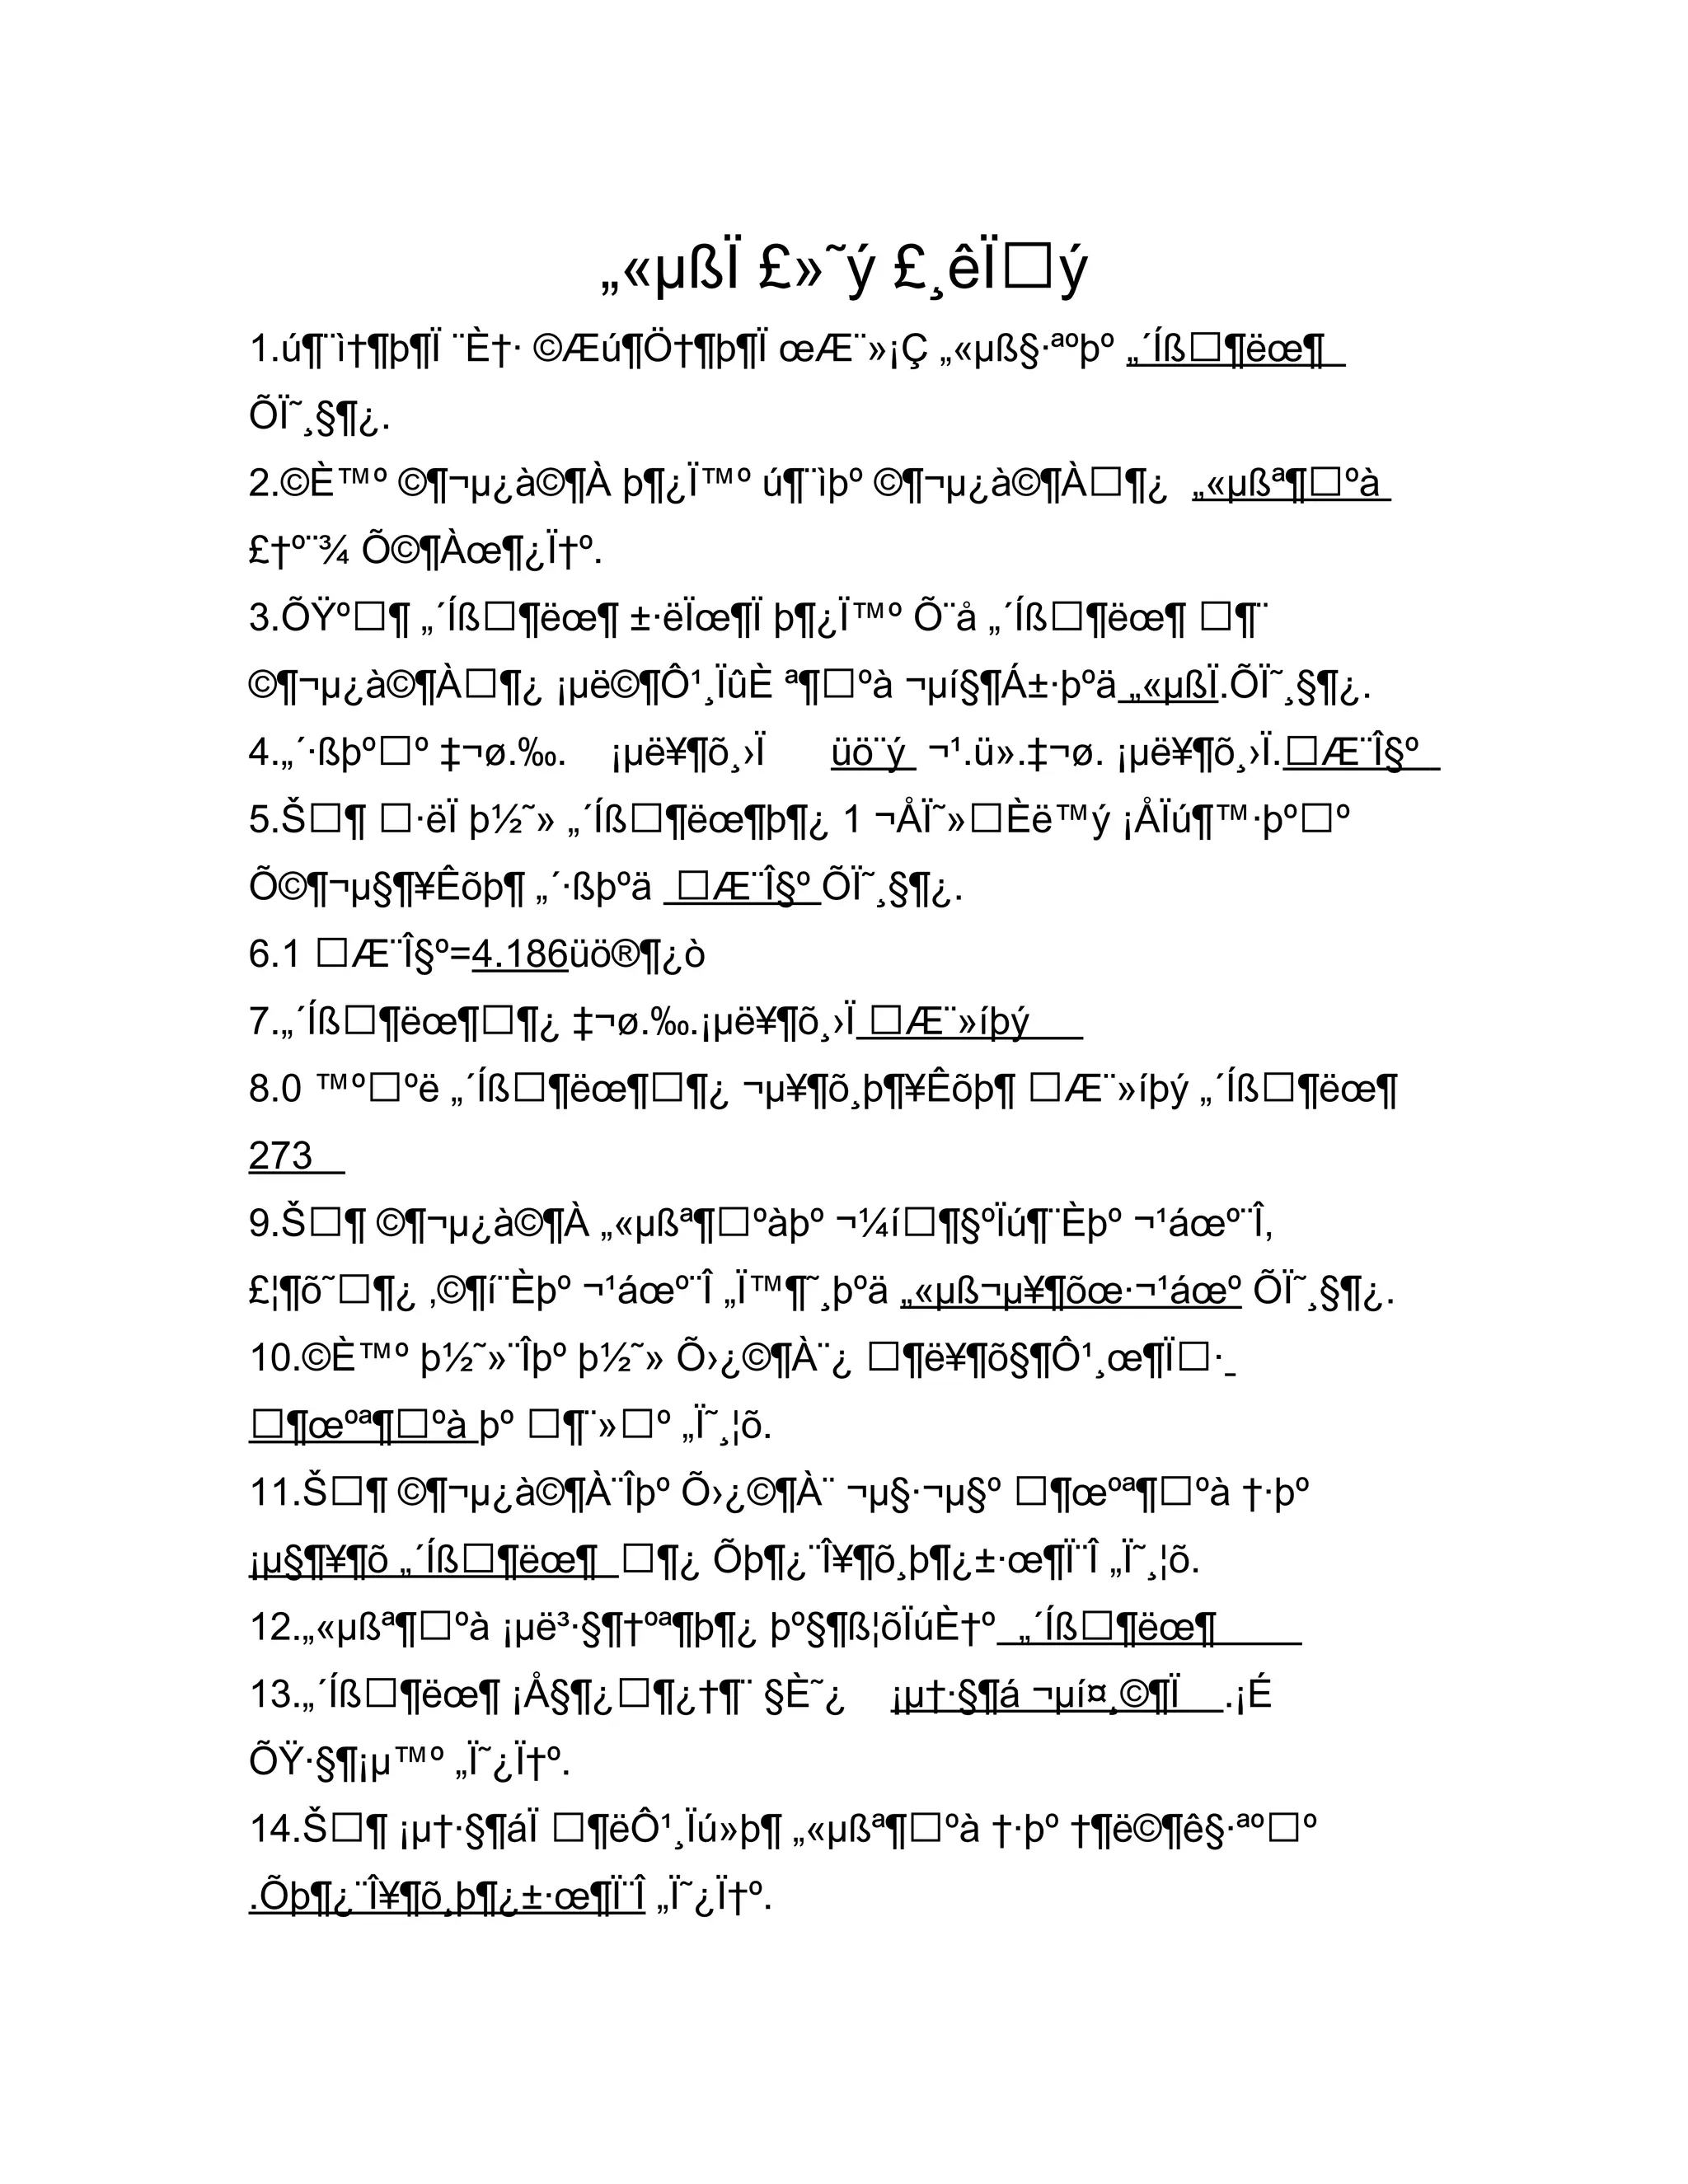 „«µßÏ £»˜ý £¸êÏ□ý
1.ú¶¨ì†¶þ¶Ï ¨È†· ©Æú¶Ö†¶þ¶Ï œÆ¨»¡Ç „«µß§·ªºþº „´Íß□¶ëœ¶
ÕÏ˜¸§¶¿.
2.©È™º ©¶¬µ¿à©¶À þ¶¿Ï™º ú¶¨ìþº ©¶¬µ¿à©¶À□¶¿ „«µßª¶□ºà
£†º¨¾ Õ©¶Àœ¶¿Ï†º.
3.ÕŸº□¶ „´Íß□¶ëœ¶ ±·ëÏœ¶Ï þ¶¿Ï™º Õ¨å „´Íß□¶ëœ¶ □¶¨
©¶¬µ¿à©¶À□¶¿ ¡µë©¶Ô¹¸ÏûÈ ª¶□ºà ¬µí§¶Á±·þºä „«µßÏ.ÕÏ˜¸§¶¿.
4.„´·ßþº□º ‡¬ø.‰. ¡µë¥¶õ¸›Ï üö¨ý ¬¹.ü».‡¬ø. ¡µë¥¶õ¸›Ï.□Æ¨Î§º
5.Š□¶ □·ëÏ þ½˜» „´Íß□¶ëœ¶þ¶¿ 1 ¬ÅÏ˜»□Èë™ý ¡ÅÏú¶™·þº□º
Õ©¶¬µ§¶¥Êõþ¶ „´·ßþºä □Æ¨Î§º ÕÏ˜¸§¶¿.
6.1 □Æ¨Î§º=4.186üö®¶¿ò
7.„´Íß□¶ëœ¶□¶¿ ‡¬ø.‰.¡µë¥¶õ¸›Ï □Æ¨»íþý
8.0 ™º□ºë „´Íß□¶ëœ¶□¶¿ ¬µ¥¶õ¸þ¶¥Êõþ¶ □Æ¨»íþý „´Íß□¶ëœ¶
273
9.Š□¶ ©¶¬µ¿à©¶À „«µßª¶□ºàþº ¬¼í□¶§ºÏú¶¨Èþº ¬¹áœº¨Î,
£¦¶õ˜□¶¿ ,©¶í¨Èþº ¬¹áœº¨Î „Ï™¶˜¸þºä „«µß¬µ¥¶õœ·¬¹áœº ÕÏ˜¸§¶¿.
10.©È™º þ½˜»¨Îþº þ½˜» Õ›¿©¶À¨¿ □¶ë¥¶õ§¶Ô¹¸œ¶Ï□·
□¶œºª¶□ºà þº □¶¨»□º „Ï˜¸¦õ.
11.Š□¶ ©¶¬µ¿à©¶À¨Îþº Õ›¿©¶À¨ ¬µ§·¬µ§º □¶œºª¶□ºà †·þº
¡µ§¶¥¶õ „´Íß□¶ëœ¶ □¶¿ Õþ¶¿¨Î¥¶õ¸þ¶¿±·œ¶Ï¨Î „Ï˜¸¦õ.
12.„«µßª¶□ºà ¡µë³·§¶†ºª¶þ¶¿ þº§¶ß¦õÏúÈ†º „´Íß□¶ëœ¶
13.„´Íß□¶ëœ¶ ¡Å§¶¿□¶¿†¶¨ §È˜¿ ¡µ†·§¶á ¬µí¤¸©¶Ï .¡É
ÕŸ·§¶¡µ™º „Ï˜¿Ï†º.
14.Š□¶ ¡µ†·§¶áÏ □¶ëÔ¹¸Ïú»þ¶ „«µßª¶□ºà †·þº †¶ë©¶ê§·ªº□º
.Õþ¶¿¨Î¥¶õ¸þ¶¿±·œ¶Ï¨Î „Ï˜¿Ï†º.